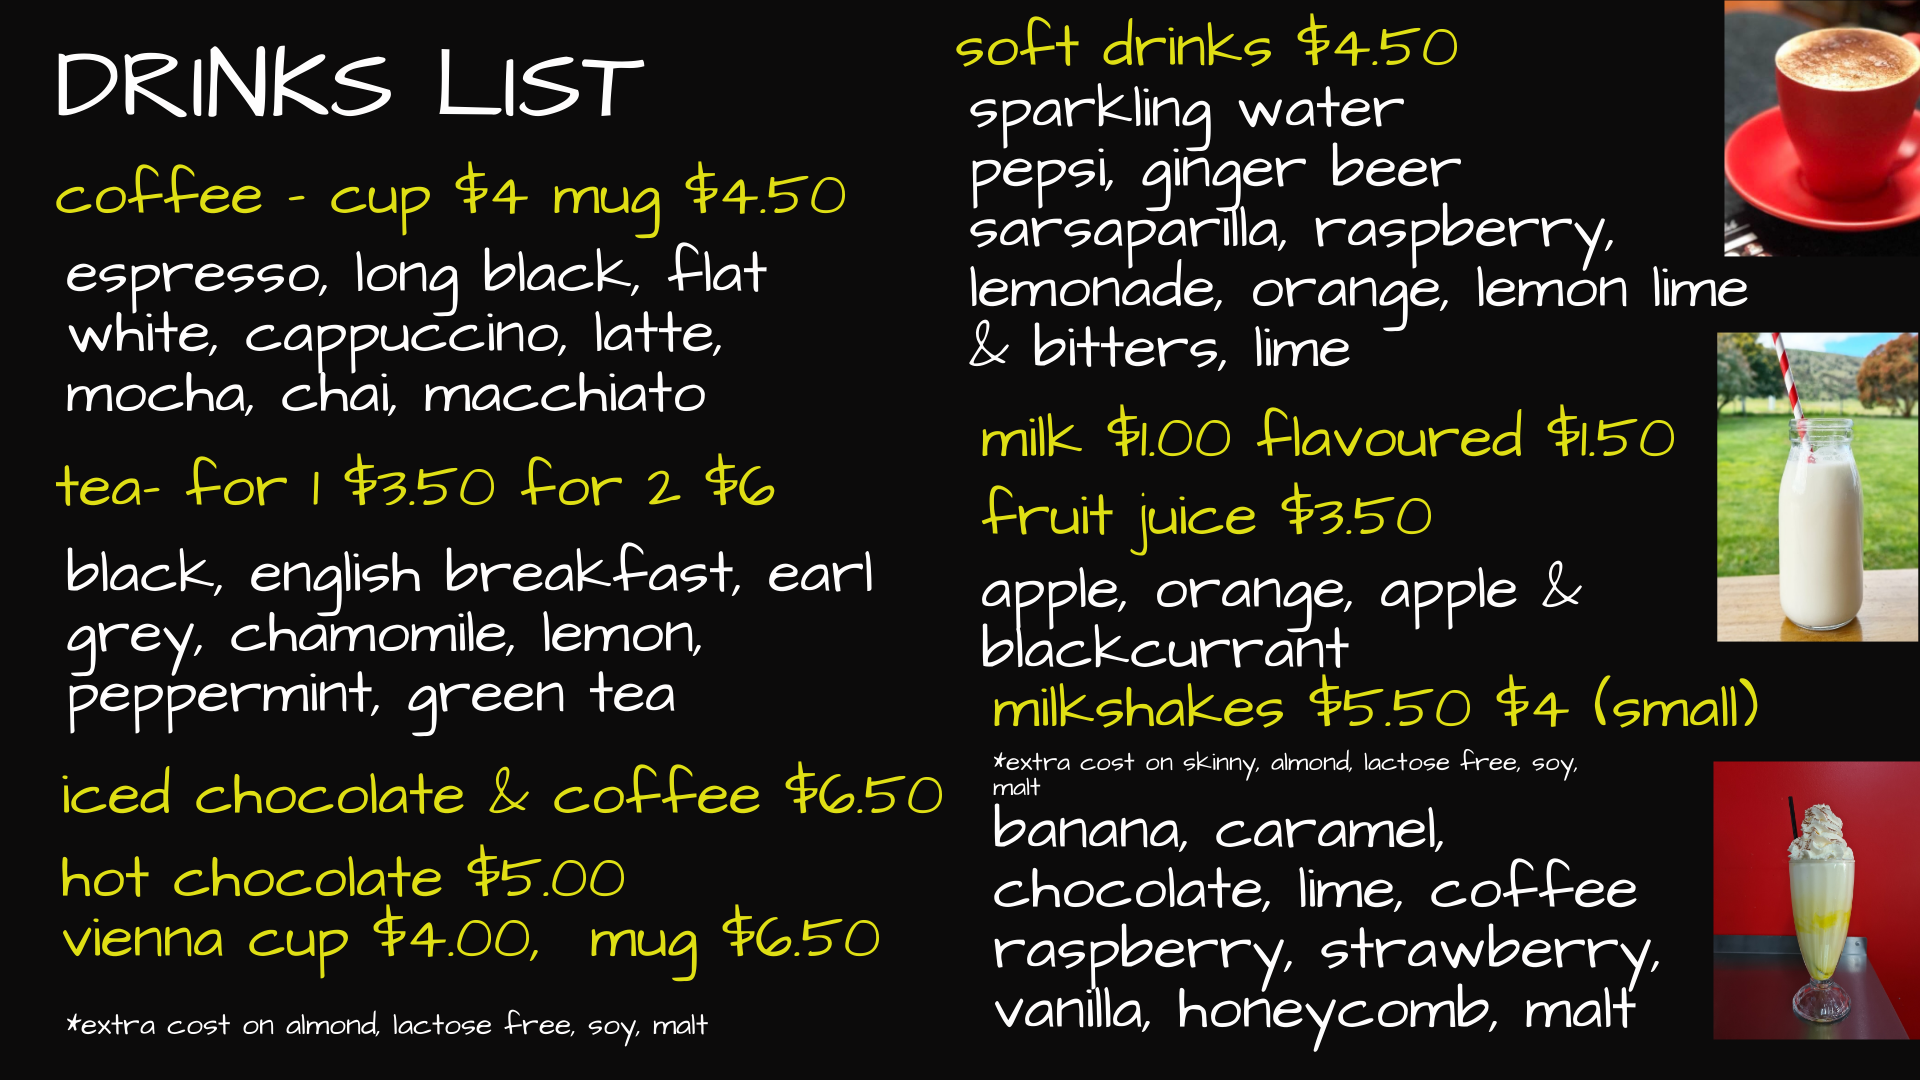 DRINKS LIST
coffee - cup $4 mug $4.50
espresso, long black, flat
white, cappuccino, latte,
mocha, chai, macchiato
tea- for 1 $3.50 for 2 $6
black, english breakfast, earl
grey, chamomile, lemon,
peppermint, green tea
iced chocolate & coffee $6.50
hot chocolate $5.00
vienna cup $4.00, mug $6.50
*extra cost on almond, lactose free, soy, malt
soft drinks $4.50
sparkling water
pepsi, ginger beer
sarsaparilla, raspberry,
lemonade, orange, lemon lime
& bitters, lime
milk $1.00 flavoured $1.50
fruit juice $3.50
apple, orange, apple &
blackcurrant
milkshakes $5.50 $4 (small)
*extra cost on skinny, almond, lactose free, soy,
malt
banana, caramel,
chocolate, lime, coffee
raspberry, strawberry,
vanilla, honeycomb, malt